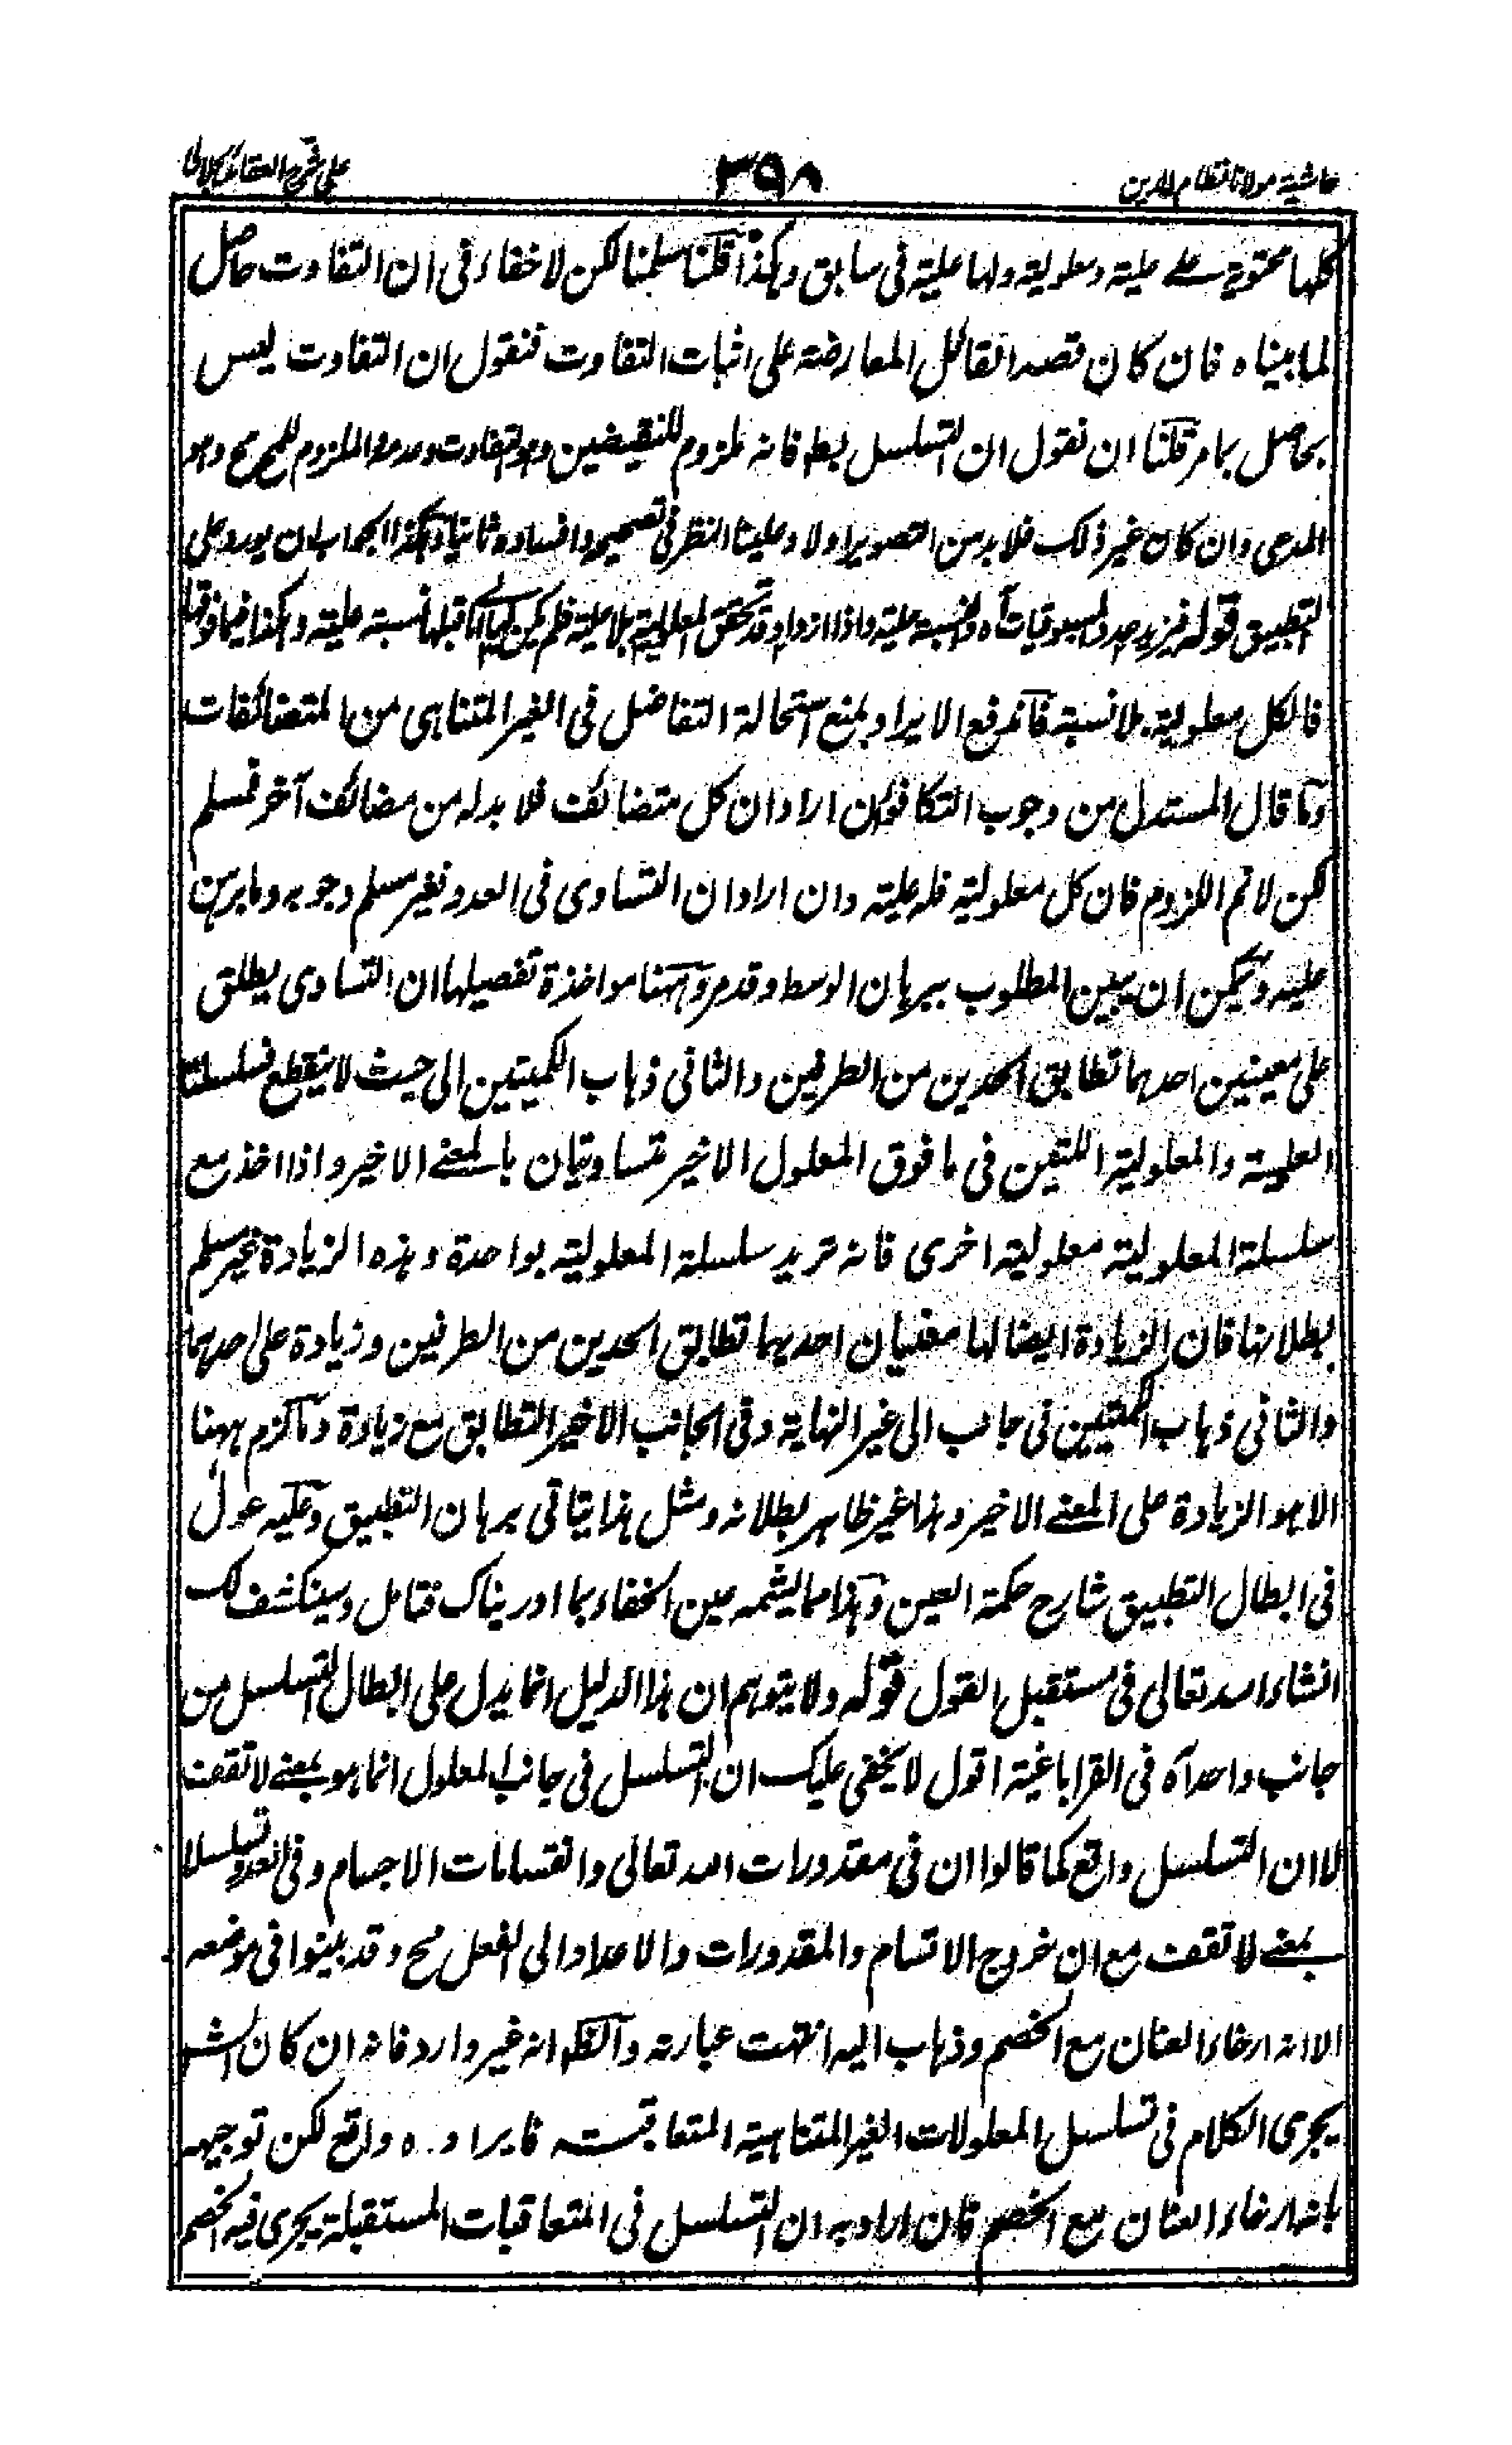 حاشية مولانا نظام الدين
٣٩٨
على شرح العقائد
كلها محتوية على علية ومعلولية ولها علية فى سابق وهكذا قلنا سلمنا لكن لا خفاء فى ان التفاوت حاصل
لما بيناه فان كان قصد القائل المعارضة على اثبات التفاوت فنقول ان التفاوت ليس
بحاصل بما مر قلنا ان نقول ان التسلسل بط فانه ملزوم للنقيضين وهو التفاوت وعدمه والملزوم للمح مح وهو
المدعى وان كان غير ذلك فلا بد من التصوير اولا وعلينا النظر فى تصحيحه وافساده ثانيا وهكذا الجواب ان يورد على
التطبيق قوله فيزيد عدد المسبوقيات آه نسبة علية واذا ازداد وقد تحقق المعلولية بلا علية فلم يكن قبلها نسبة علية وهكذا فيما فوقها
فالكل معلولية بلا نسبة فاندفع الايراد بمنع استحالة التفاضل فى الغير المتناهى من المتضائفات
وما قال المستدل من وجوب التكافوء ان اراد ان كل متضائف فلا بد له من مضائف آخر فمسلم
لكن لا تم اللزوم فان كل معلولية فله علية وان اراد ان التساوى فى العدد فغير مسلم وجوبه وما برهن
عليه ويمكن ان يبين المطلوب ببرهان الوسط وقد مر وههنا مواخذة تفصيلها ان التساوى يطلق
على معنيين احدهما تطابق الحدين من الطرفين والثانى ذهاب الكميتين الى حيث لا ينقطع فسلسلتا
العلية والمعلولية اللتين فى ما فوق المعلول الاخير متساويتان بالمعنى الاخير واذا اخذ مع
سلسلة المعلولية معلولية اخرى فانه تزيد سلسلة المعلولية بواحدة وهذه الزيادة غير مسلم
بطلانها فان الزيادة ايضا لها معنيان احديهما تطابق الحدين من الطرفين وزيادة على احدهما
والثانى ذهاب الكميتين فى جانب الى غير النهاية وفى الجانب الاخير التطابق مع زيادة وما لزم ههنا
الا هو الزيادة على المعنى الاخير وهذا غير ظاهر بطلانه ومثل هذا يتاتى برهان التطبيق وعليه عول
فى ابطال التطبيق شارح حكمة العين وهذا مما يشمه عين الخفاء بما ادريناك فتامل وسينكشف لك
انشاء الله تعالى فى مستقبل القول قوله ولا يتوهم ان هذا الدليل انما يدل على ابطال التسلسل من
جانب واحد آه فى القراباغية اقول لا يخفى عليك ان التسلسل فى جانب المعلول انما هو بمعنى لا تقف
لا ان التسلسل واقع كما قالوا ان فى مقدورات الله تعالى وانقسامات الاجسام وفى العدد تسلسلا
بمعنى لا تقف مع ان خروج الاقسام والمقدورات والاعداد الى الفعل مح وقد بينوا فى موضعه
الا انه ارخاء العنان مع الخصم وذهاب اليه انتهت عبارته والظ انه غير وارد فانه ان كان الش
يجرى الكلام فى تسلسل المعلولات الغير المتناهية المتعاقبة فايراده واقع لكن توجيهه
بانه ارخاء العنان مع الخصم فان اراد به ان التسلسل فى المتعاقبات المستقبلة يجرى فيه الخصم